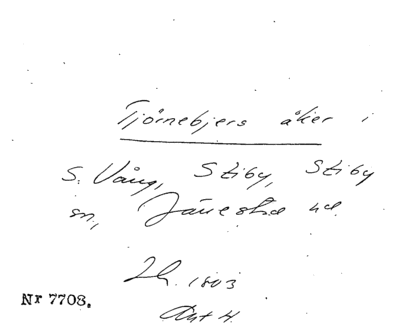 Tjörnebjers åker i
S. Vång, Stiby, Stiby
sn, Järrestad hd.
Lh. 1803
Akt 4.
Nr 7708.